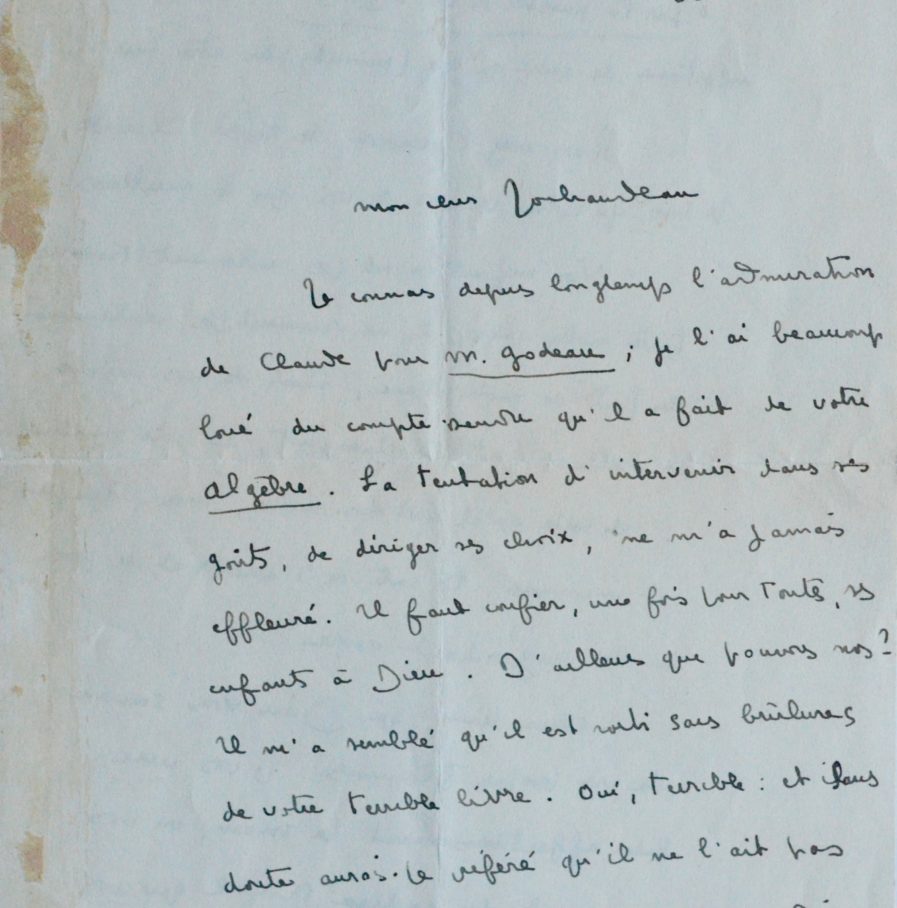 mon cher Jouhandeau
Je connais depuis longtemps l'admiration
de Claude pour M. Godeau ; je l'ai beaucoup
loué du compte rendu qu'il a fait de votre
algèbre. La tentation d'intervenir dans ses
goûts, de diriger ses choix, ne m'a jamais
effleuré. Il faut confier, une fois pour toutes, ses
enfants à Dieu. D'ailleurs que pouvons nous?
Il m'a semblé qu'il est sorti sans brûlures
de votre terrible livre. Oui, terrible : et sans
doute aurais-je préféré qu'il ne l'ait pas